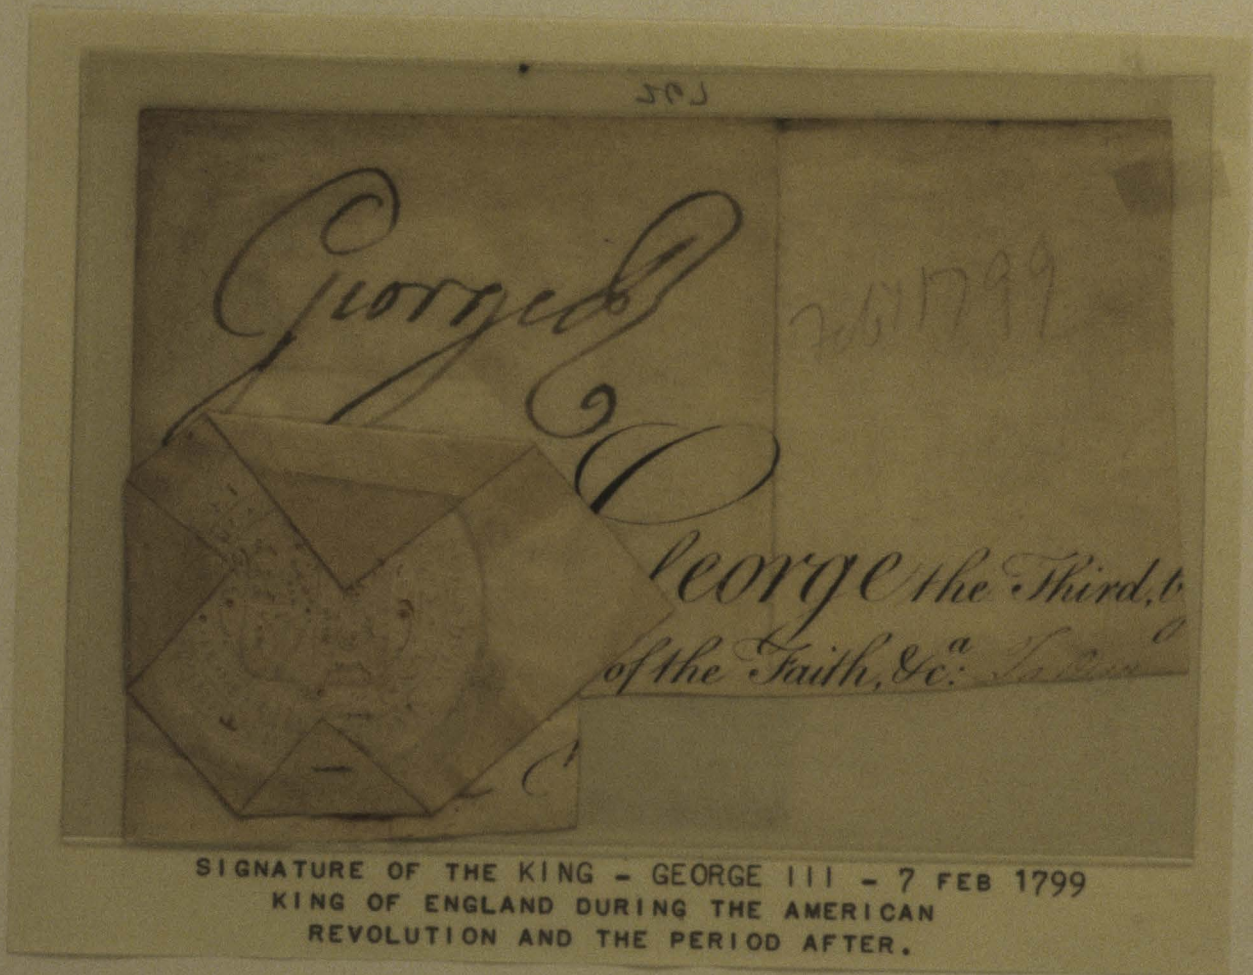 George R
Feb 7 1799
George the Third, b
of the Faith, &c.a:
SIGNATURE OF THE KING - GEORGE III - 7 FEB 1799
KING OF ENGLAND DURING THE AMERICAN
REVOLUTION AND THE PERIOD AFTER.